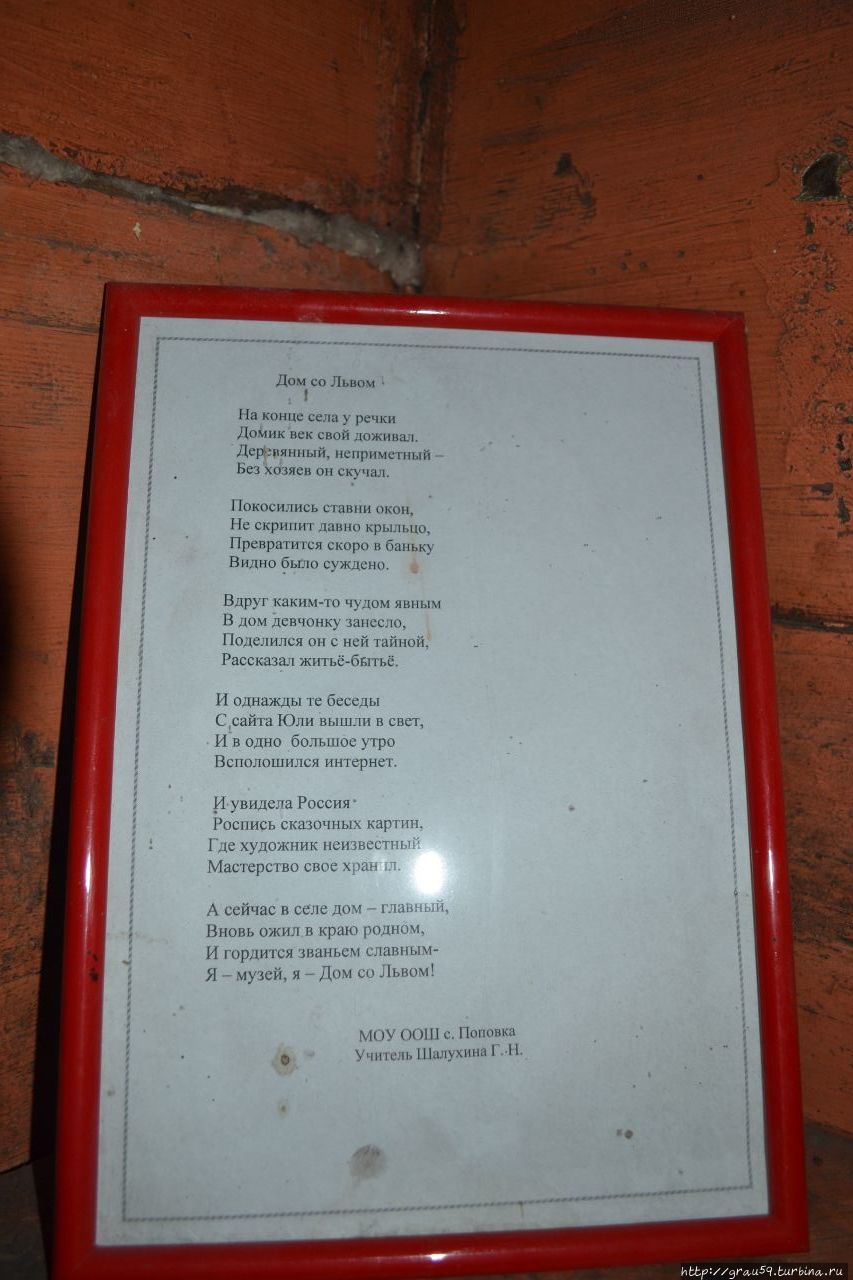 Дом со Львом
На конце села у речки
Домик век свой доживал.
Деревянный, неприметный –
Без хозяев он скучал.
Покосились ставни окон,
Не скрипит давно крыльцо,
Превратится скоро в баньку
Видно было суждено.
Вдруг каким-то чудом явным
В дом девчонку занесло,
Поделился он с ней тайной,
Рассказал житьё-бытьё.
И однажды те беседы
С сайта Юли вышли в свет,
И в одно большое утро
Всполошился интернет.
И увидела Россия
Роспись сказочных картин,
Где художник неизвестный
Мастерство свое хранил.
А сейчас в селе дом – главный,
Вновь ожил в краю родном,
И гордится званьем славным-
Я – музей, я – Дом со Львом!
МОУ ООШ с. Поповка
Учитель Шалухина Г. Н.
http://grau59.turbina.ru